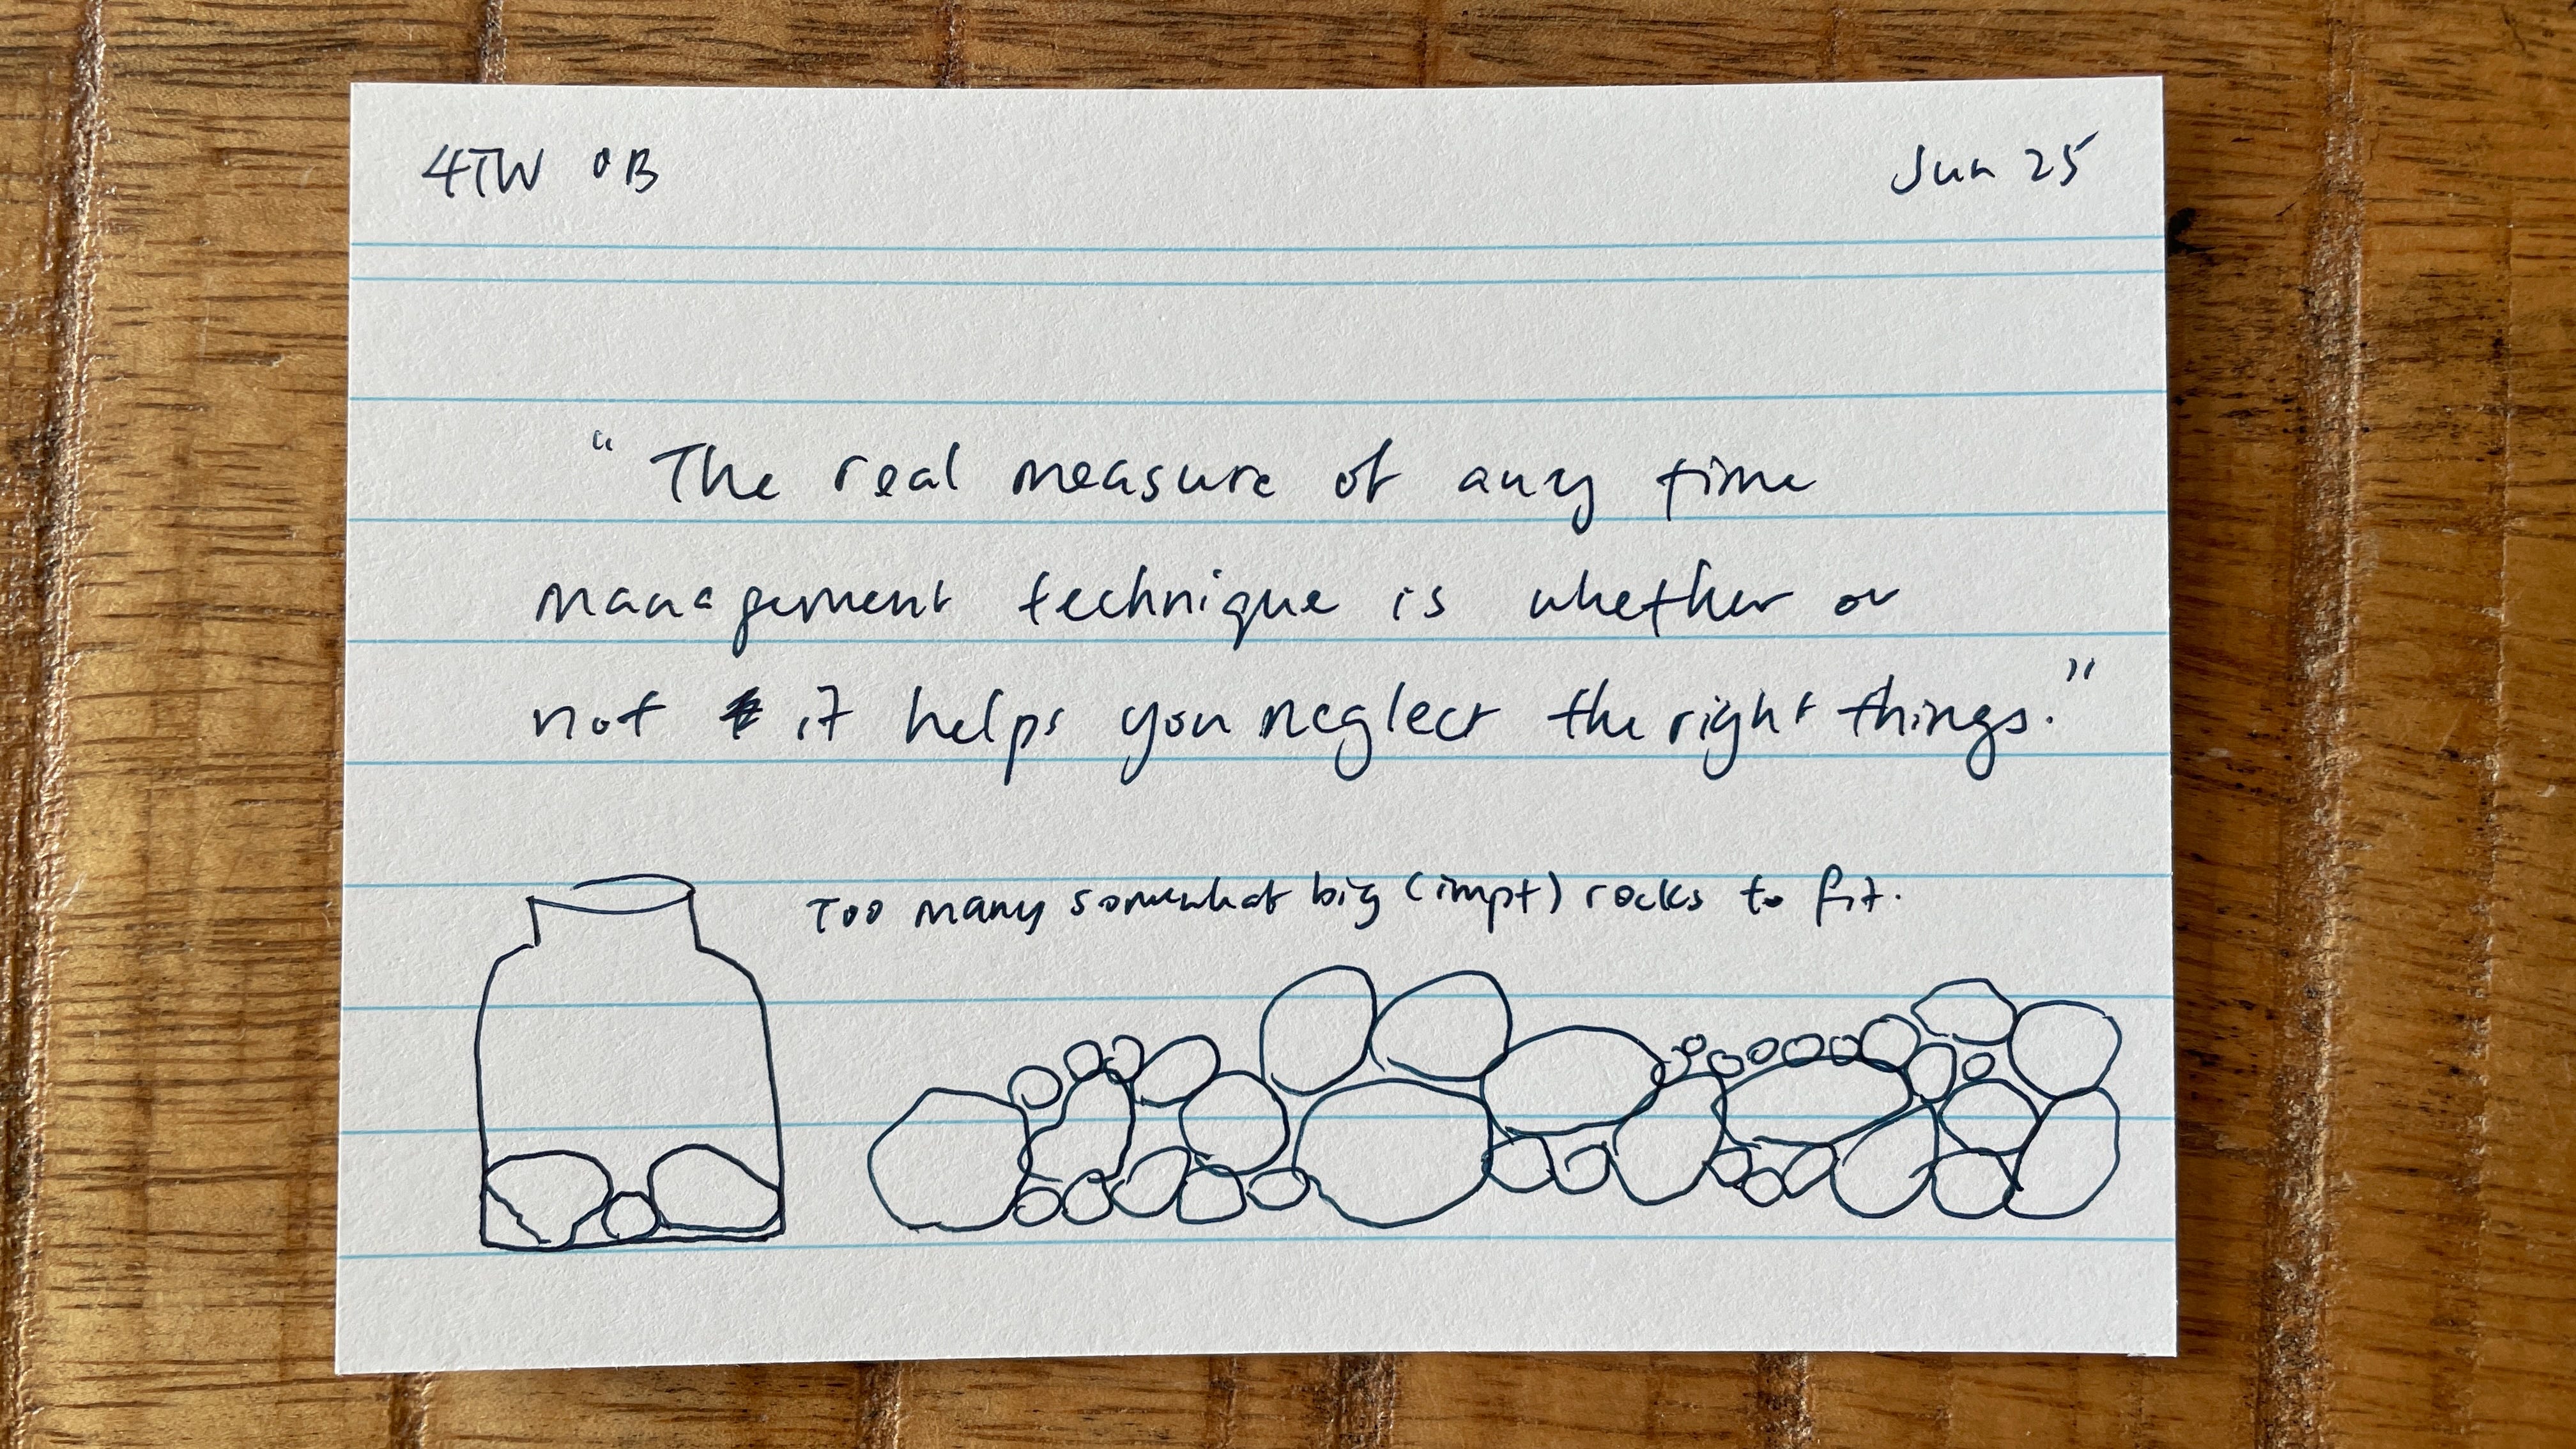 4TW OB
Jun 25
"The real measure of any time
management technique is whether or
not it helps you neglect the right things."
Too many somewhat big (impt) rocks to fit.